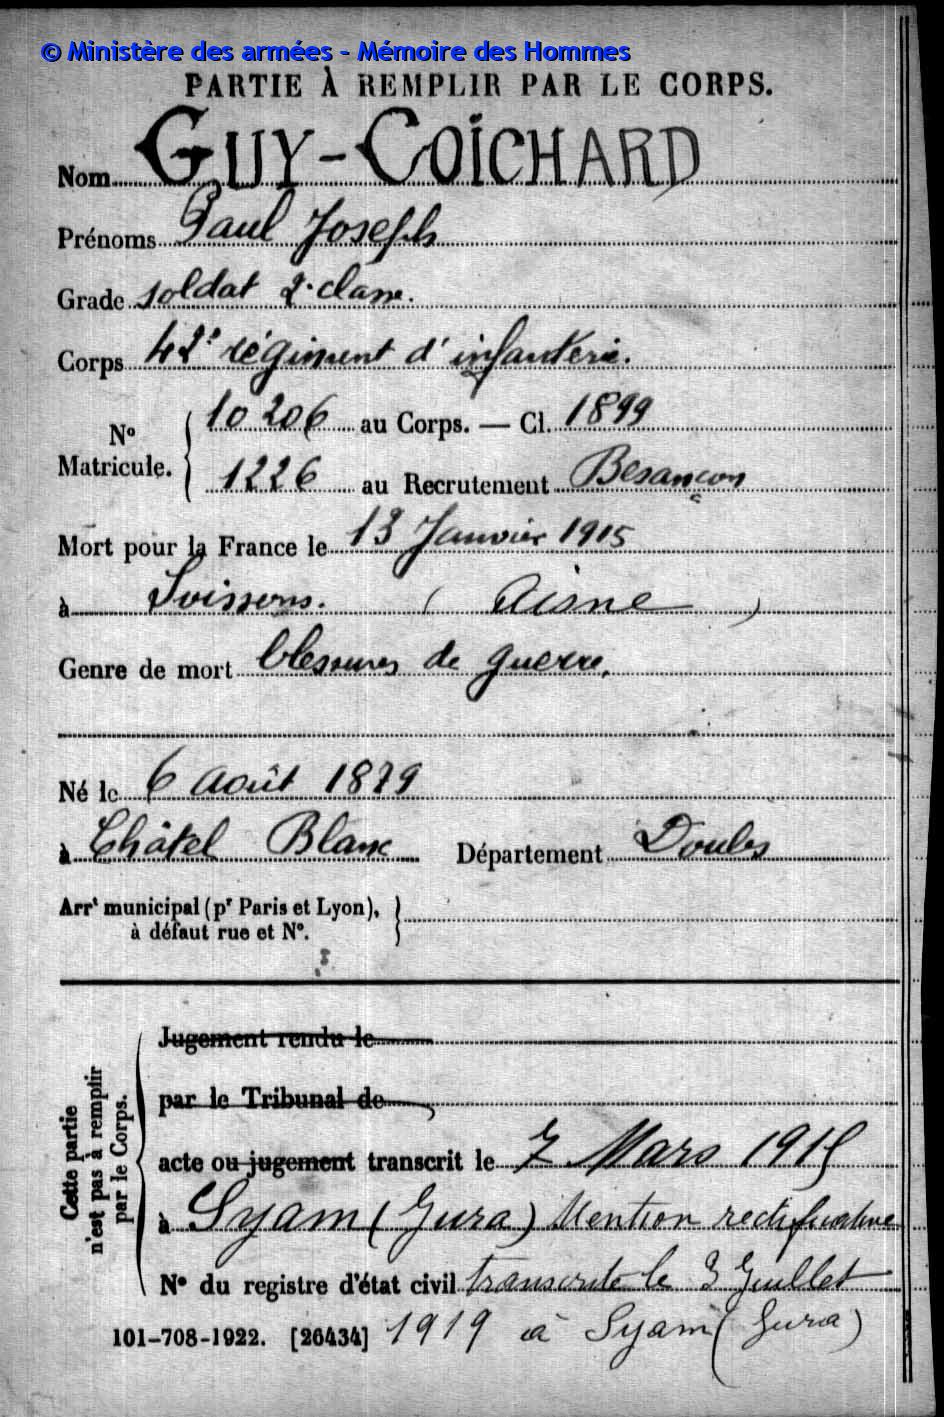 © Ministère des armées - Mémoire des Hommes
PARTIE À REMPLIR PAR LE CORPS.
Nom GUY-COÏCHARD
Prénoms Paul Joseph
Grade soldat 2e classe.
Corps 42e régiment d'infanterie.
No Matricule. { 10 206 au Corps. — Cl. 1899
1226 au Recrutement Besançon
Mort pour la France le 13 Janvier 1915
à Soissons. (Aisne)
Genre de mort blessures de guerre.
Né le 6 août 1879
à Châtel Blanc Département Doubs
Arrt municipal (pr Paris et Lyon), à défaut rue et No. }
Cette partie n'est pas à remplir par le Corps.
Jugement rendu le
par le Tribunal de
acte ou jugement transcrit le 7 Mars 1915
à Syam (Jura) Mention rectificative
No du registre d'état civil transcrite le 3 Juillet
101-708-1922. [26434] 1919 à Syam (Jura)